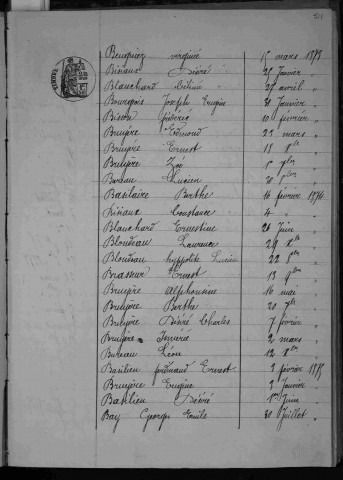 Bruyère virginie 15 mars 1873
Désiré 25 Janvier "
Blanchard 27 avril "
Bourgeois Joseph Eugène 31 Janvier "
Bison 10 février "
Bruyère Edmond 23 mars "
Bruyère Ernest 13 8bre "
Bruyère Zoé 5 7bre "
Bureau Lucien 30 8bre "
Basilaire Berthe 16 février 1874
Constance 4 " "
Blanchard Ernestine 26 Juin "
Blondeau Laurence 29 8bre "
Blondeau hyppolite Lucien 22 8bre "
Brasseur Ernest 13 9bre "
Bruyère Alphonsine 16 mai "
Bruyère Berthe 20 7bre "
Bruyère Désiré Charles 7 février "
Bruyère 2 mars "
Bureau Léon 12 8bre "
Basilien ferdinand Ernest 3 février 1875
Bruyère Eugène 2 Janvier "
Basilien Désiré 1er Juin "
Bay Georges Emile 30 Juillet "